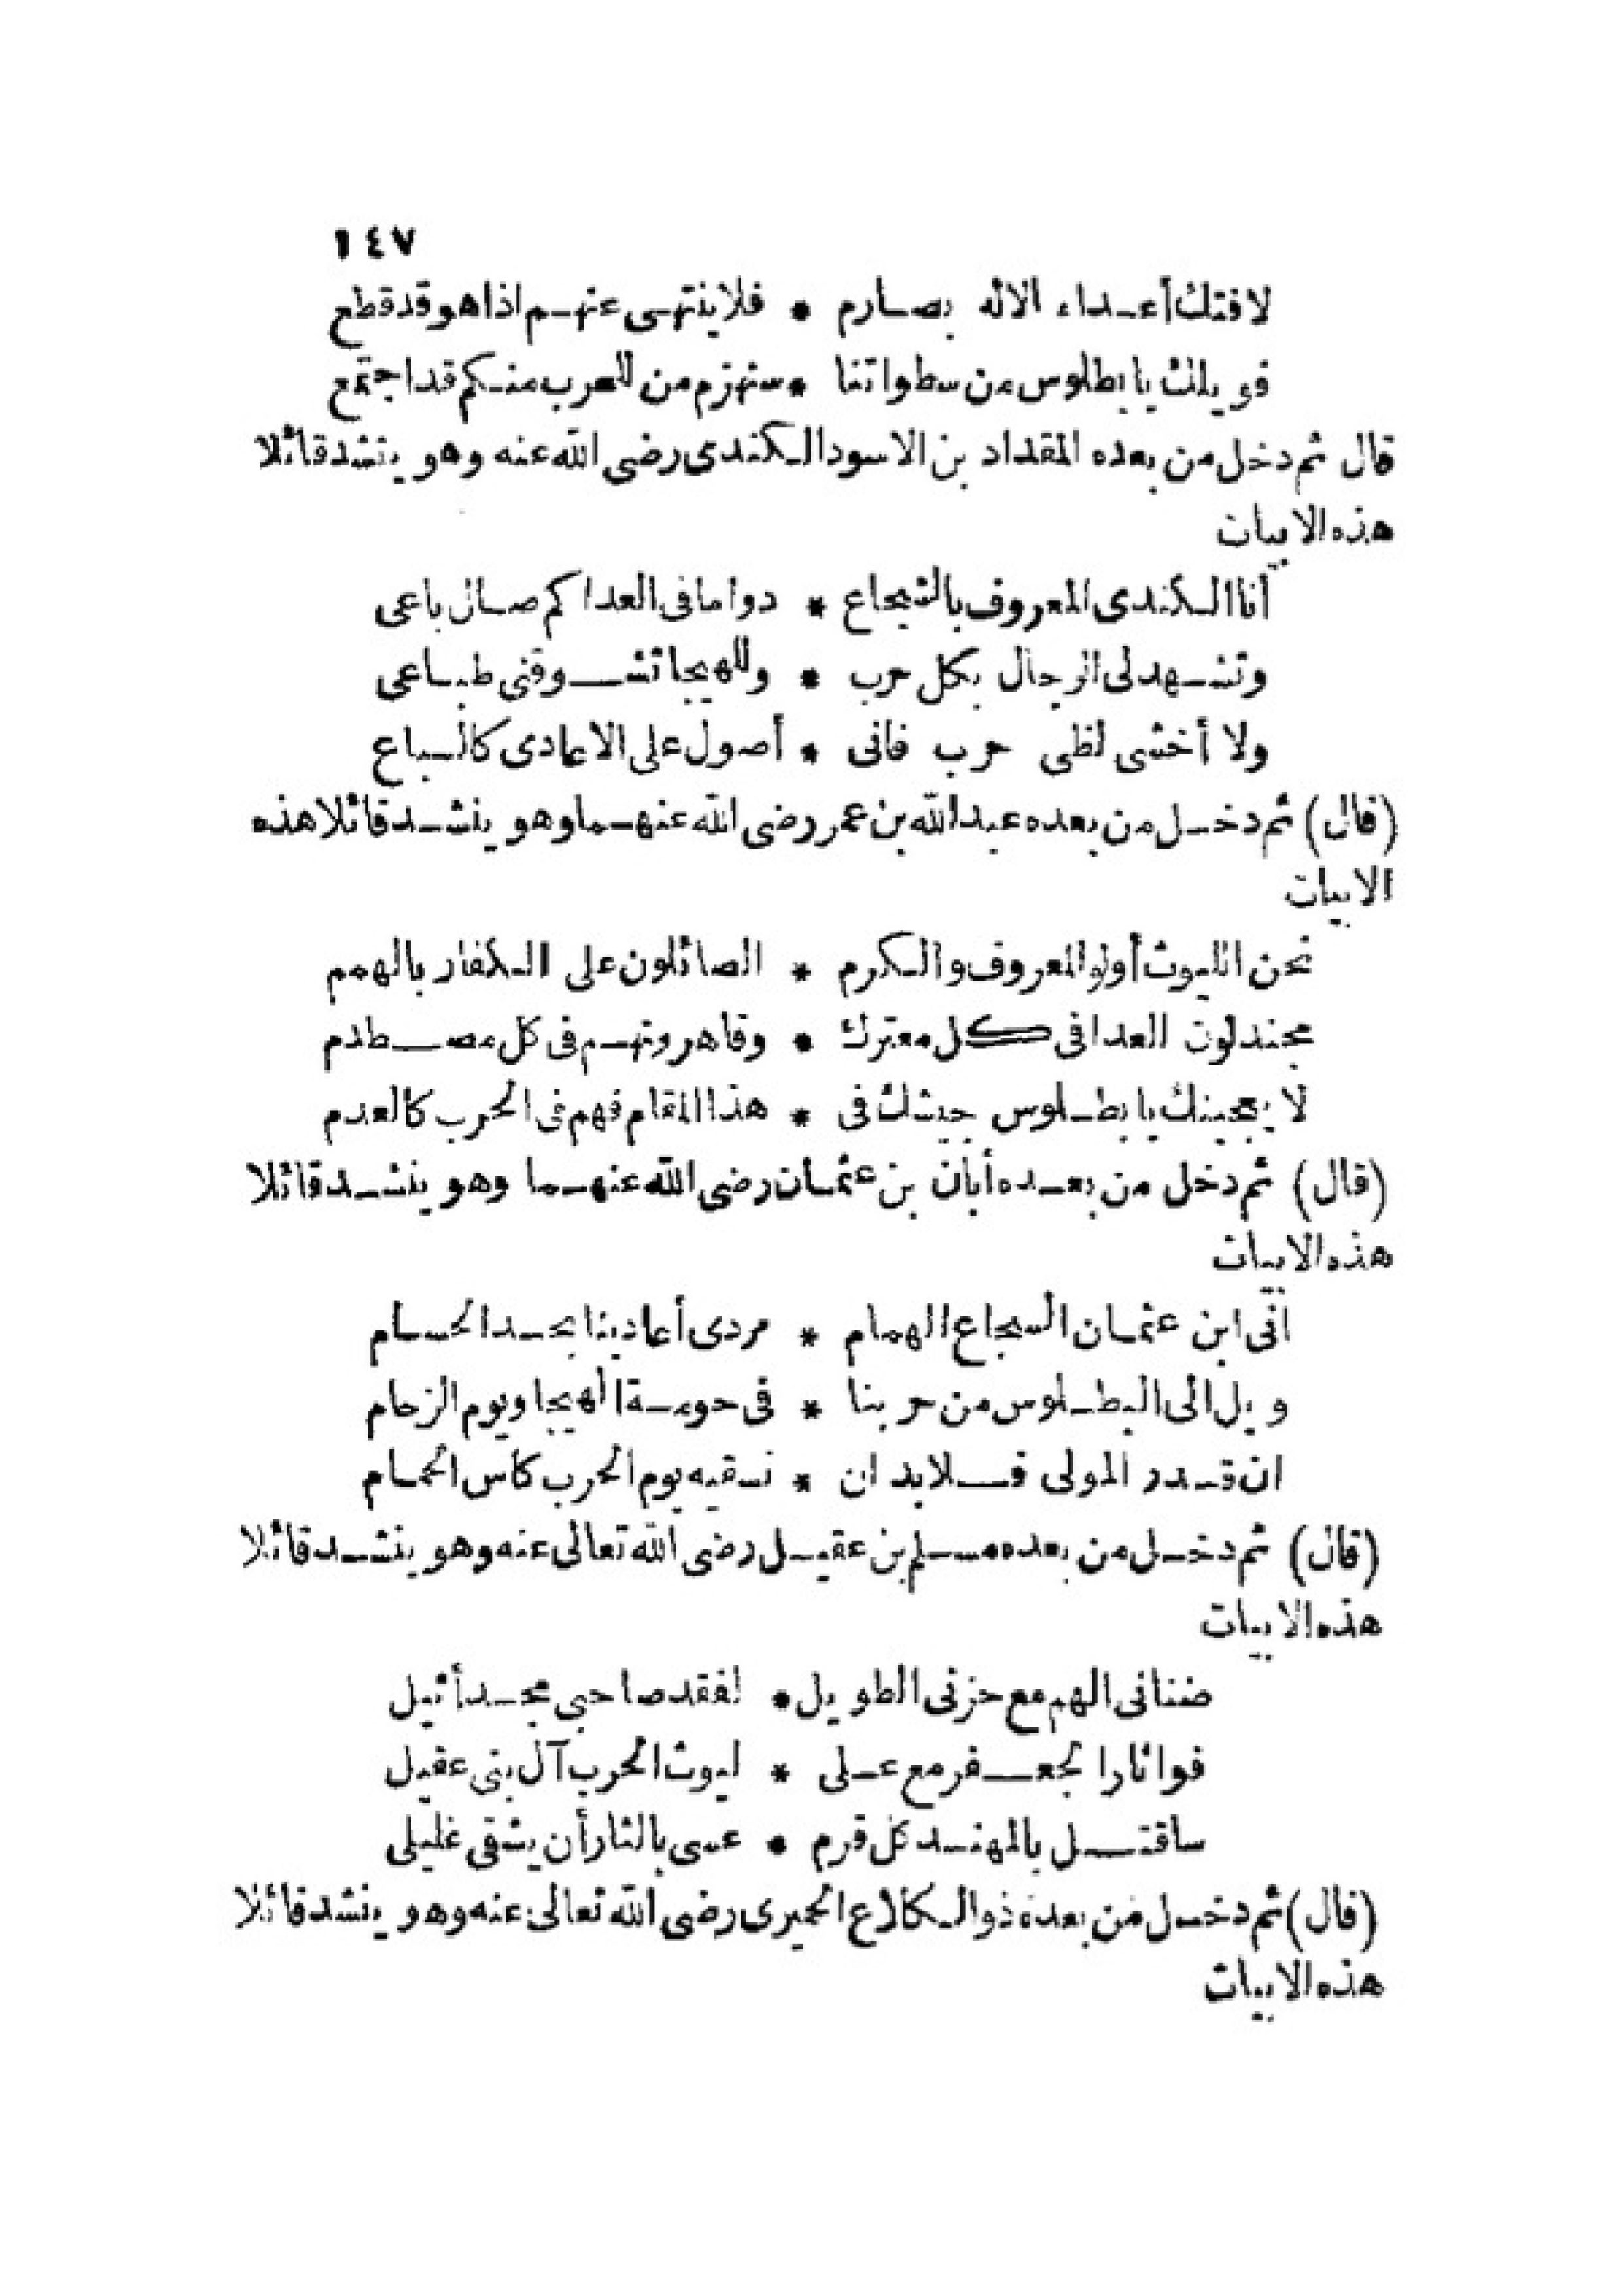 ١٤٧
لافتك أعداء الاله بصارم * فلا ينتهى عنهم اذا هو قد قطع
فويلك يا بطلوس من سطواتنا * ستهزم من للعرب منكم قد اجتمع
قال ثم دخل من بعده المقداد بن الاسود الكندى رضى الله عنه وهو ينشد قائلا
هذه الابيات
أنا الكندى المعروف بالشجاع * دواما فى العدا كم صال باعى
وتشهد لى الرجال بكل حرب * وللهيجا تشوقنى طباعى
ولا أخشى لظى حرب فانى * أصول على الاعادى كالسباع
(قال) ثم دخل من بعده عبد الله بن عمر رضى الله عنهما وهو ينشد قائلا هذه
الابيات
نحن الليوث أولو المعروف والكرم * الصائلون على الكفار بالهمم
مجندلون العدا فى كل معترك * وقاهروتهم فى كل مصطدم
لا يعجبنك يا بطلوس جيشك فى * هذا المقام فهم فى الحرب كالعدم
(قال) ثم دخل من بعده أبان بن عثمان رضى الله عنهما وهو ينشد قائلا
هذه الابيات
انى ابن عثمان الشجاع الهمام * مردى أعادينا بحد الحسام
ويل الى البطلوس من حربنا * فى حومة الهيجا ويوم الزحام
ان قدر المولى فلابد ان * نسقيه يوم الحرب كأس الحمام
(قال) ثم دخل من بعده مسلم بن عقيل رضى الله تعالى عنه وهو ينشد قائلا
هذه الابيات
ضنانى الهم مع حزنى الطويل * لفقد صاحبى مجد أثيل
فواثارا لجعفر مع على * ليوث الحرب آل بنى عقيل
ساقتل بالمهند كل قرم * عسى بالثار أن يشفى غليلى
(قال) ثم دخل من بعده ذو الكلاع الحميرى رضى الله تعالى عنه وهو ينشد قائلا
هذه الابيات